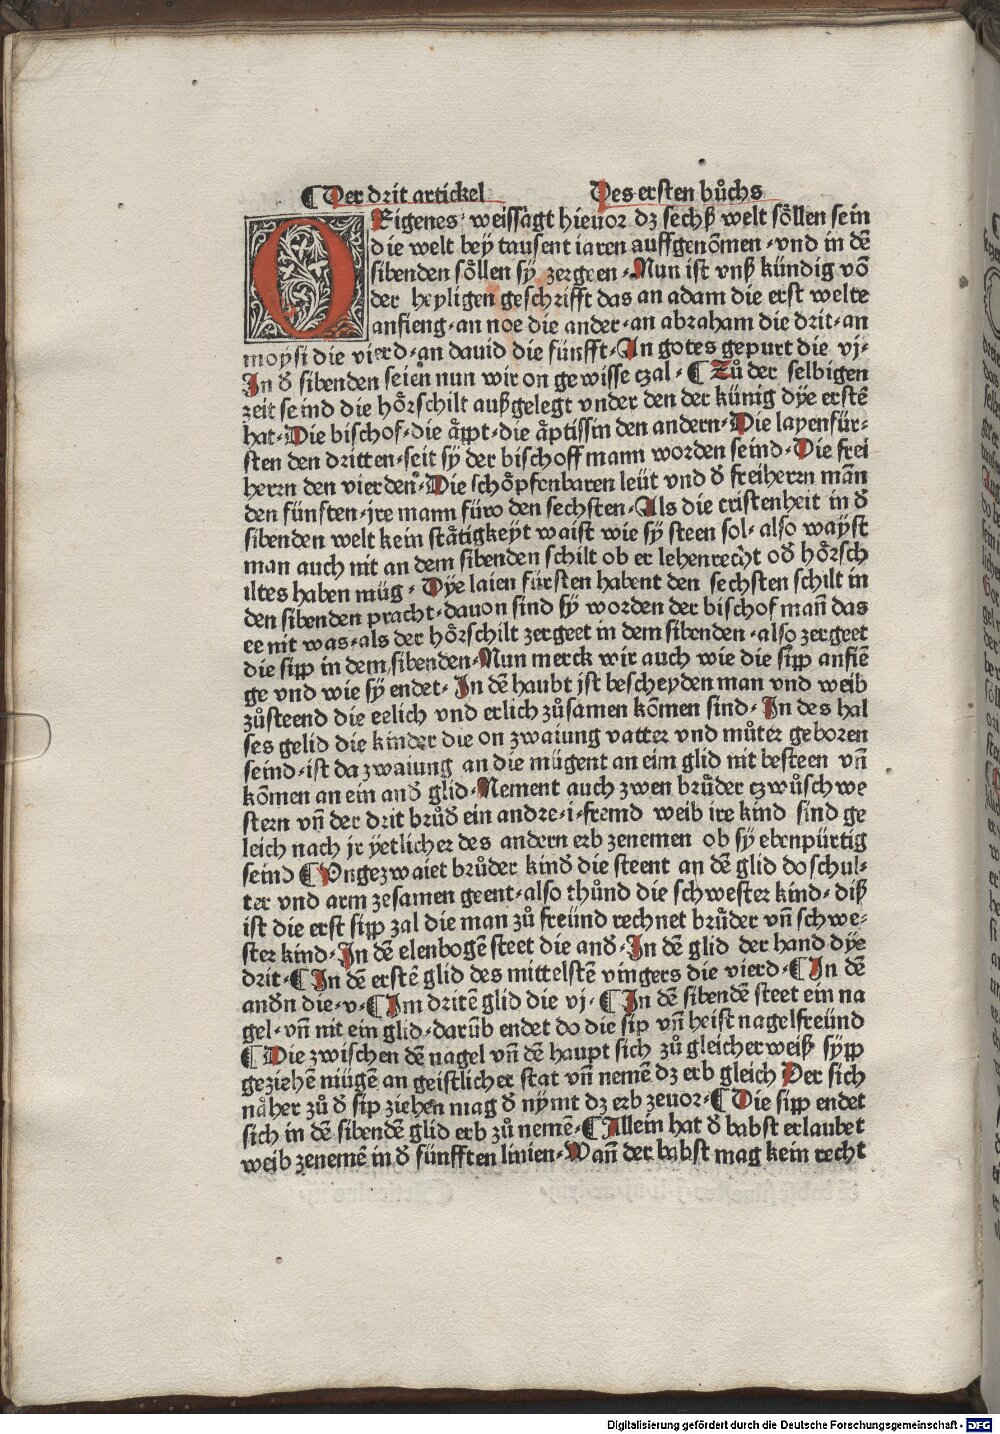 ¶ Der drit artickel Des ersten bůchs
ORigenes weissagt hieuor dz sechß welt söllen sein
die welt bey tausent iaren auffgenōmen · vnd in dē
sibenden söllen sÿ zergeen · Nun ist vnß kündig vō
der heyligen geschrifft das an adam die erst welte
anfieng · an noe die ander · an abraham die drit · an
moÿsi die vierd · an dauid die fünfft · An gotes gepurt die vj ·
In ð sibenden seien nun wir on gewisse czal · ¶ Zů der selbigen
zeit seind die hörschilt außgelegt vnder den der künig dÿe erstē
hat · Die bischof · die äppt · die äptissin den andern · Die layenfür⸗
sten den dritten · seit sÿ der bischoff mann worden seind · Die frei
herrn den vierden · Die schöpfenbaren leüt vnd ð freiherrn mān
den fünften · jre mann füro den sechsten · Als die cristenheit in ð
sibenden welt kein stätigkeyt waist wie sÿ steen sol · also wayst
man auch nit an dem sibenden schilt ob er lehenrecht oð hörsch
iltes haben müg · Dÿe laien fürsten habent den sechsten schilt in
den sibenden pracht · dauon sind sÿ worden der bischof mañ das
ee nit was · als der hörschilt zergeet in dem sibenden · also zergeet
die sipp in dem sibenden · Nun merck wir auch wie die sipp anfiē
ge vnd wie sÿ endet · In dē haubt jst bescheyden man vnd weib
zůsteend die eelich vnd erlich zůsamen kōmen sind · In des hal
ses gelid die kinder die on zwaiung vatter vnd můter geboren
seind · ist da zwaiung an die mügent an eim glid nit besteen vñ
kōmen an ein anð glid · Nement auch zwen brüder czwů schwe
stern vñ der drit brůð ein andre · i · fremd weib ire kind sind ge
leich nach jr ÿetlicher des andern erb zenemen ob sÿ ebenpürtig
seind ¶ Vngezwaiet brůder kinð die steent an dē glid do schul⸗
ter vnd arm zesamen geent · also thůnd die schwester kind · diß
ist die erst sipp zal die man zů freünd rechnet brüder vñ schwe⸗
ster kind · In dē elenbogē steet die anð · In dē glid der hand dÿe
drit · ¶ In dē erstē glid des mittelstē vingers die vierd · ¶ In dē
andn die · v · ¶ Im dritē glid die vj · ¶ In dē sibendē steet ein na
gel · vñ nit ein glid · darūb endet do die sip vñ heist nagelfreünd
¶ Die zwischen dē nagel vñ dē haupt sich zů gleicher weiß sÿpp
geziehē mügē an geistlicher stat vñ nemē dz erb gleich Der sich
näher zů ð sip ziehen mag ð nÿmt dz erb zeuor · ¶ Die sipp endet
sich in dē sibendē glid erb zů nemē · ¶ Allein hat ð babst erlaubet
weib zenemē in ð fünfften linien · Wañ der babst mag kein recht
Digitalisierung gefördert durch die Deutsche Forschungsgemeinschaft - DFG